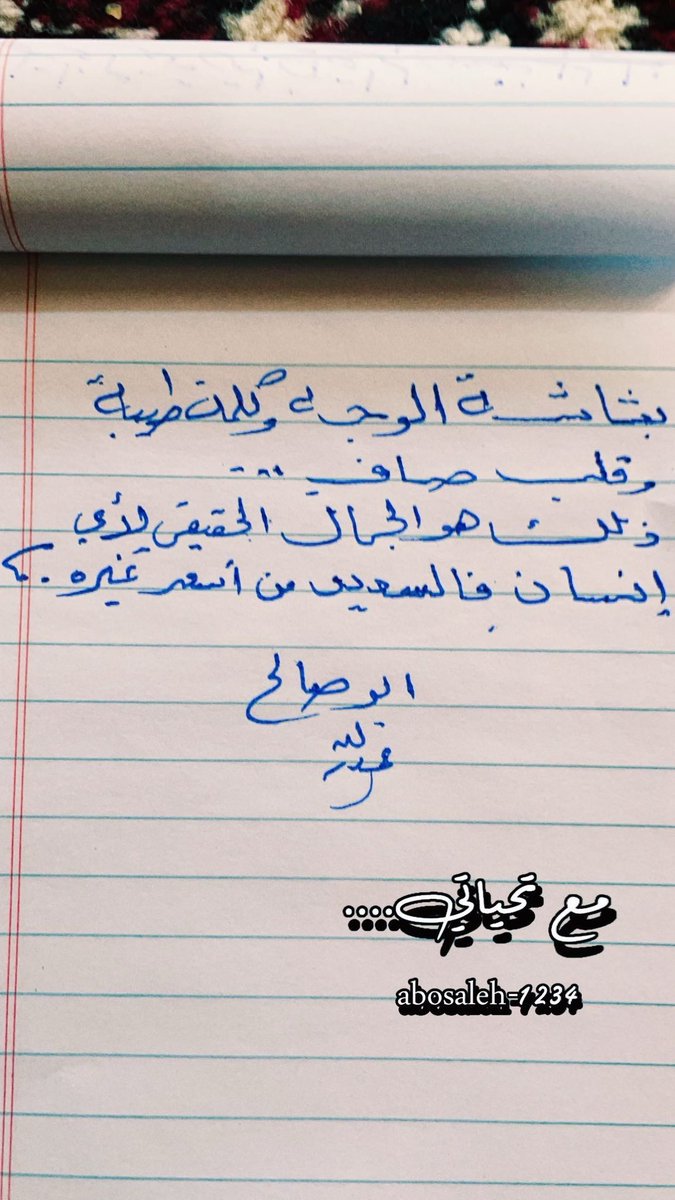 بشاشة الوجه وكلمة طيبة
وقلب صافي ...
ذلك هو الجمال الحقيقي لأي
إنسان فالسعيد من أسعد غيره .
ابو صالح
مع تحياتي....
abosaleh-1234